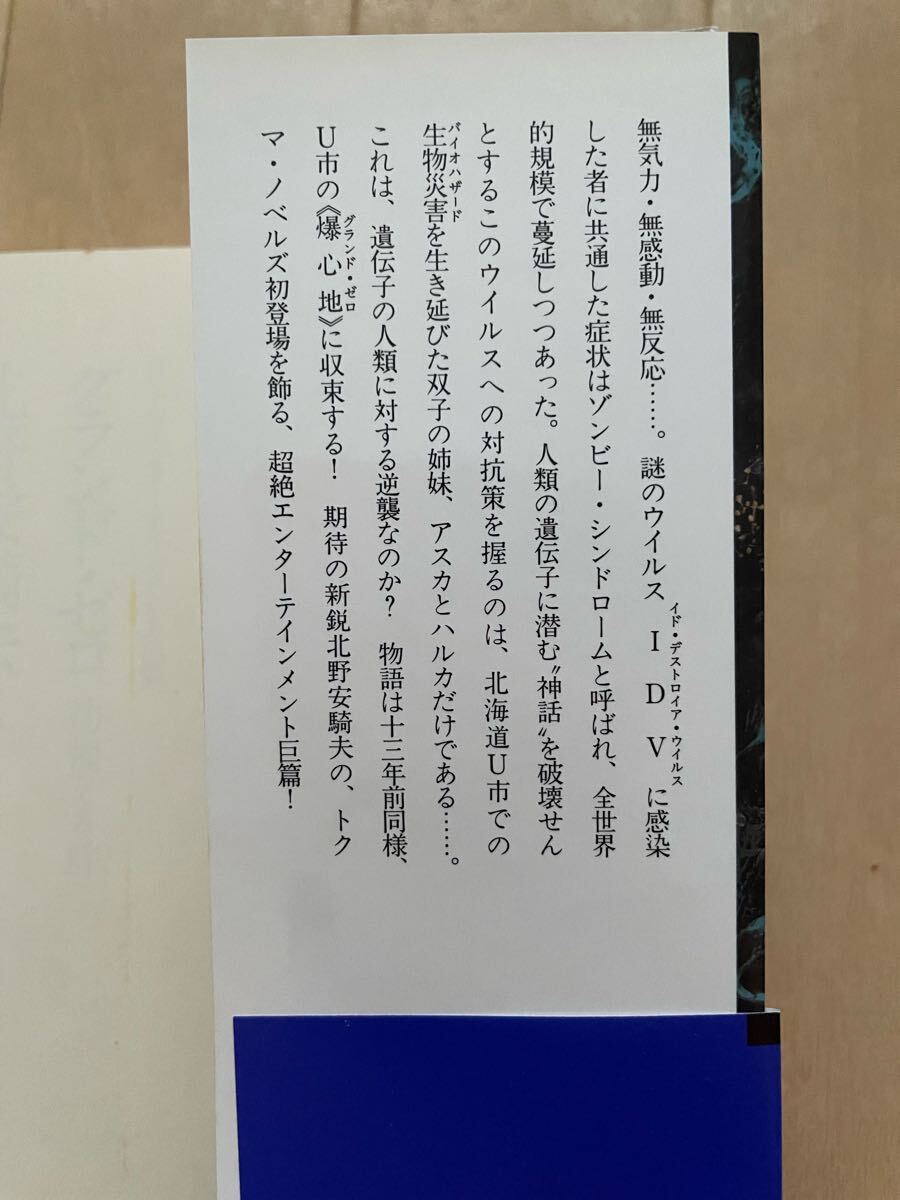 無気力・無感動・無反応……。謎のウイルスＩＤＶに感染
イド・デストロイア・ウイルス
した者に共通した症状はゾンビー・シンドロームと呼ばれ、全世界
的規模で蔓延しつつあった。人類の遺伝子に潜む〝神話〟を破壊せん
とするこのウイルスへの対抗策を握るのは、北海道Ｕ市での
生物災害を生き延びた双子の姉妹、アスカとハルカだけである……。
バイオハザード
これは、遺伝子の人類に対する逆襲なのか？　物語は十三年前同様、
Ｕ市の《爆心地》に収束する！　期待の新鋭北野安騎夫の、トク
グランド・ゼロ
マ・ノベルズ初登場を飾る、超絶エンターテインメント巨篇！